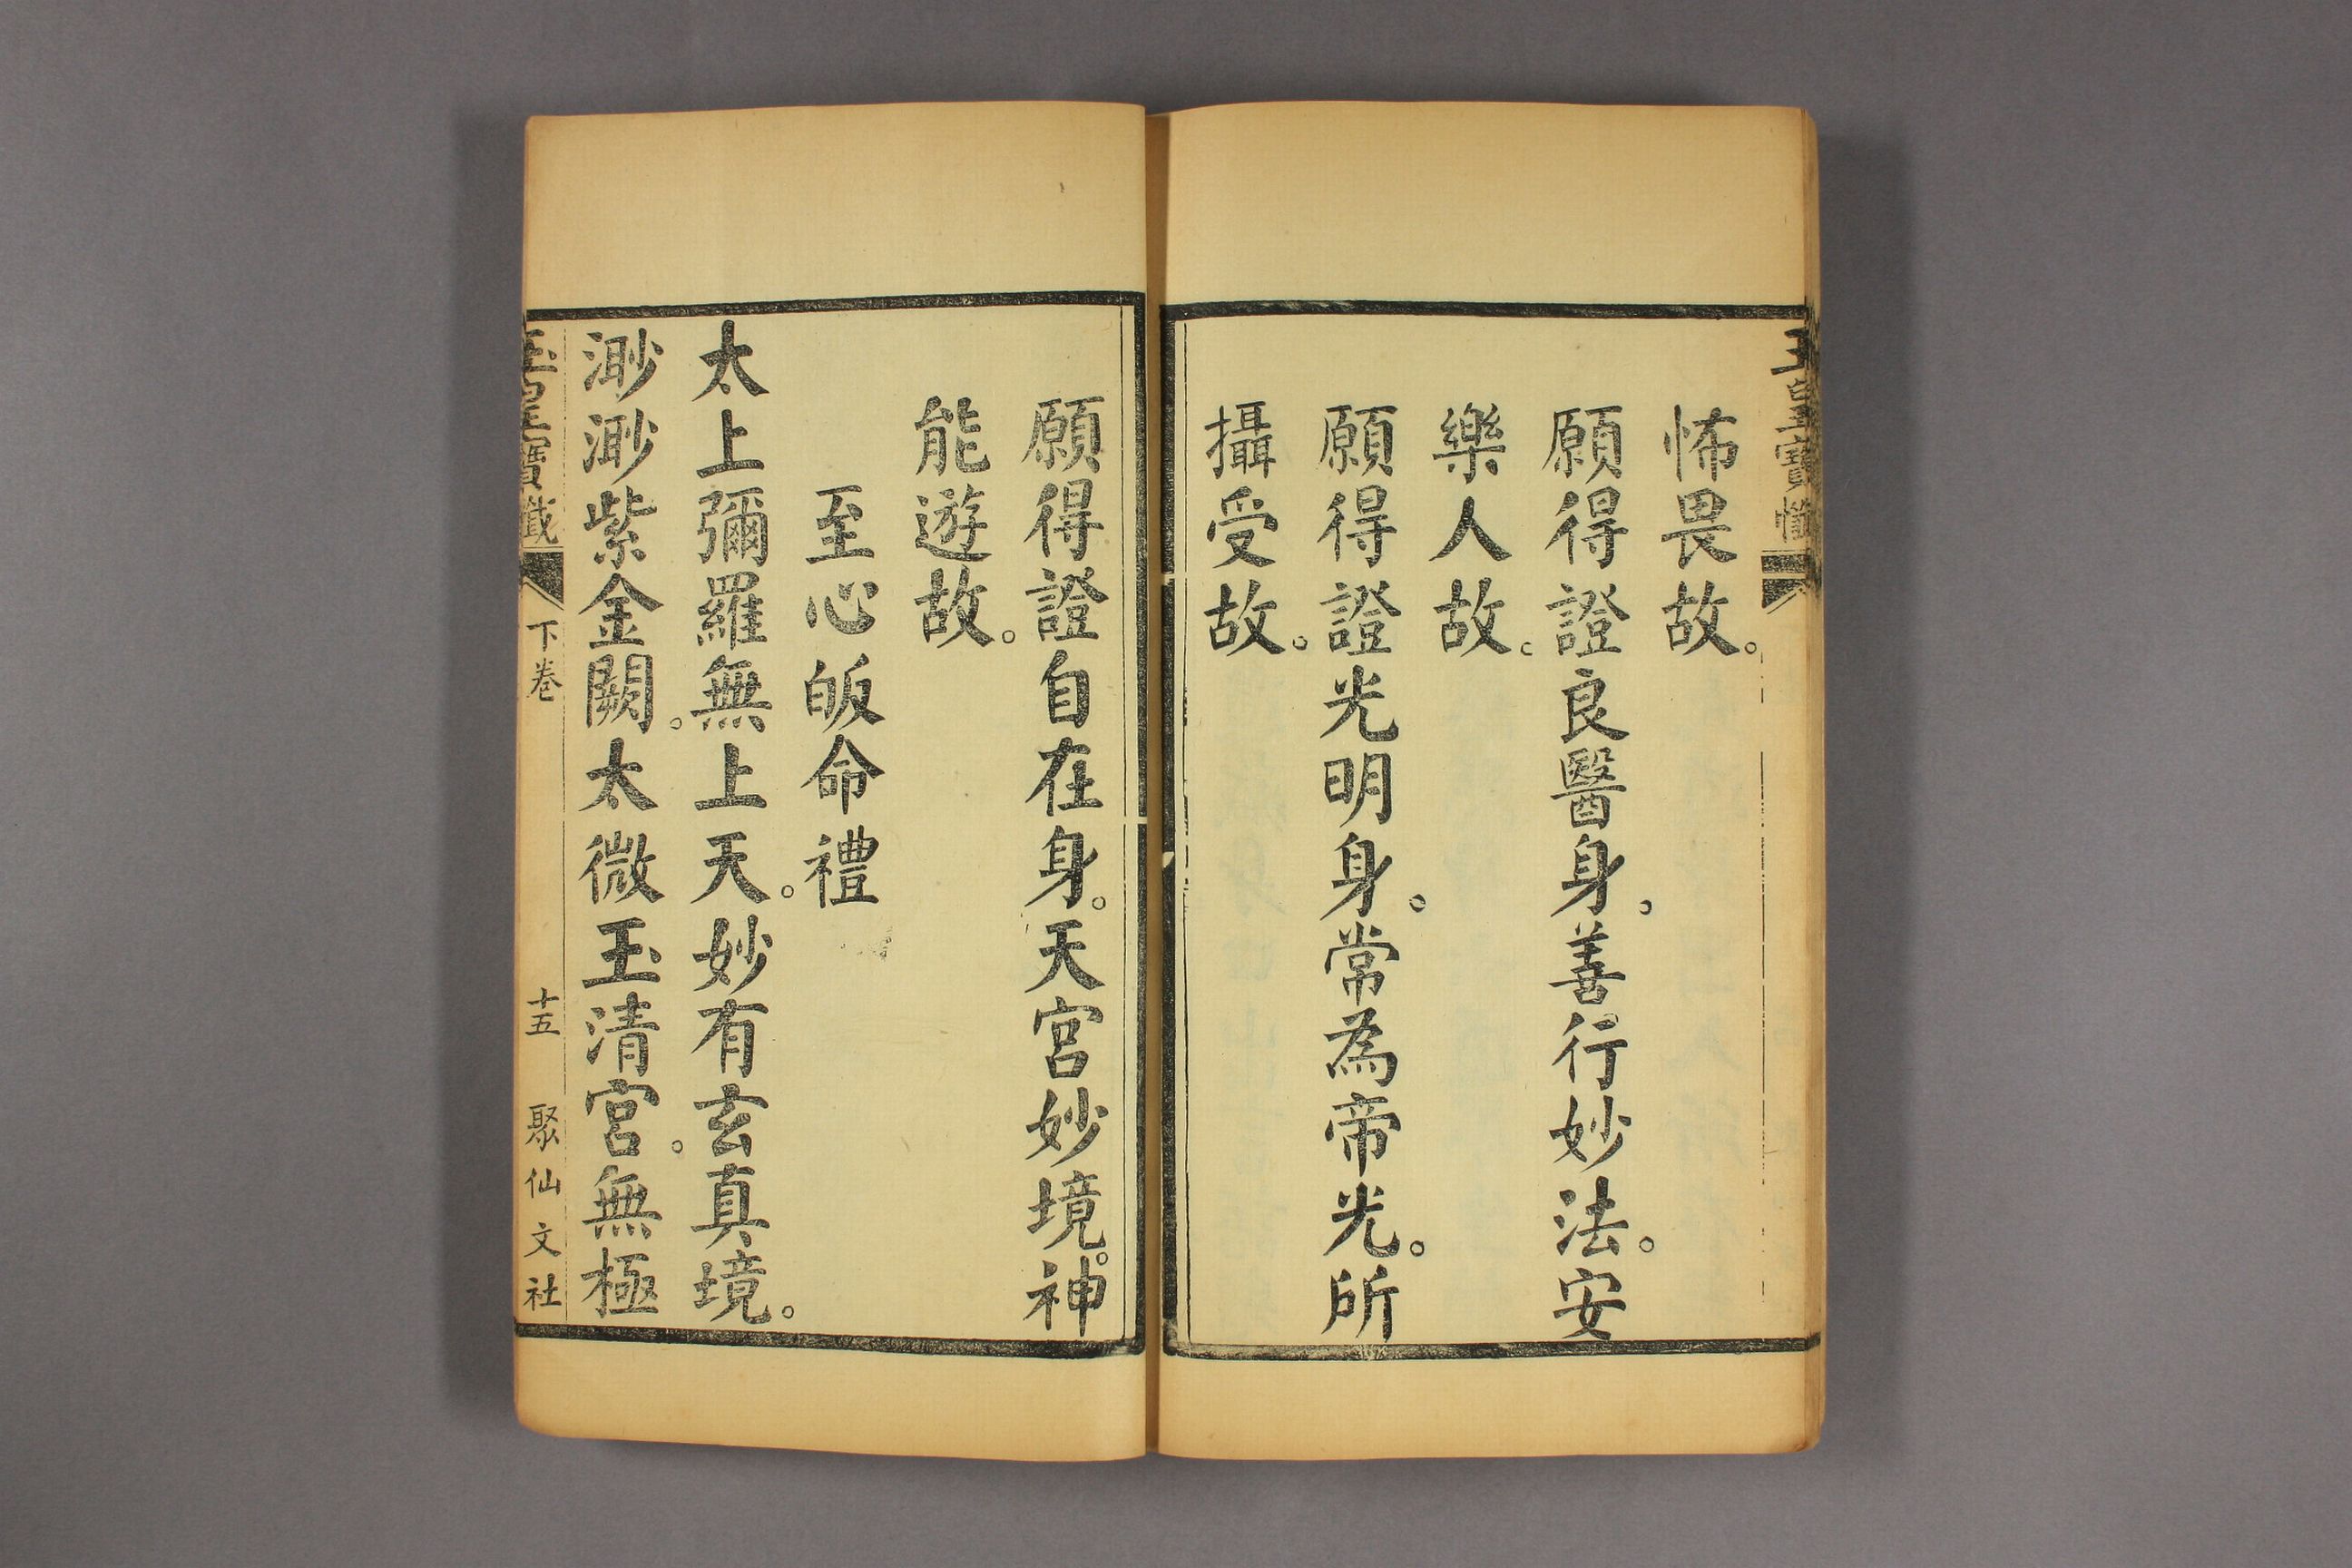 玉皇寶懺
怖畏故。
願得證良醫身。善行妙法。安
樂人故。
願得證光明身。常為帝光。所
攝受故。
願得證自在身。天宮妙境。神
能遊故。
至心皈命禮
太上彌羅無上天。妙有玄真境。
渺渺紫金闕。太微玉清宮。無極
玉皇寶懺 下卷 十五 聚仙文社